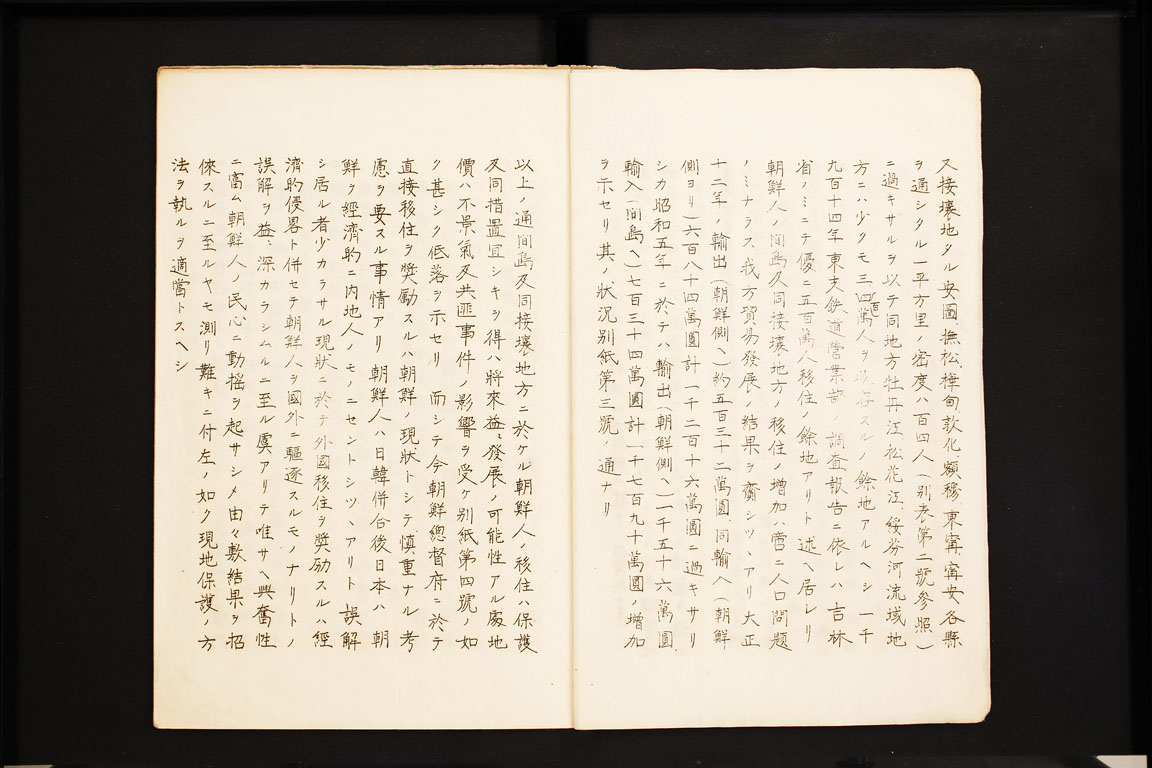 又接壤地タル安圖、撫松、樺甸、敦化、額穆、東寗、寗安各縣
ヲ通シタル一平方里ノ密度ハ百四人(別表第二號參照)
ニ過キサルヲ以テ同地方牡丹江、松花江、綏芬河流域地
方ニハ少クモ三四百萬人ヲ收容スルノ餘地アルヘシ一千
九百十四年東支鉄道營業部ノ調査報告ニ依レハ吉林
省ノミニテ優ニ五百萬人移住ノ餘地アリト述ヘ居レリ
朝鮮人ノ間島及同接壤地方ノ移住ノ増加ハ啻ニ人口問題
ノミナラス我方貿易發展ノ結果ヲ齎シツヽアリ大正
十二年ノ輸出(朝鮮側ヘ)約五百三十二萬圓、同輸入(朝鮮
側ヨリ)六百八十四萬圓計一千二百十六萬圓ニ過キサリ
シカ昭和五年ニ於テハ輸出(朝鮮側ヘ)一千五十六萬圓
輸入(間島ヘ)七百三十四萬圓計一千七百九十萬圓ノ増加
ヲ示セリ其ノ狀況別紙第三號ノ通ナリ
以上ノ通間島及同接壤地方ニ於ケル朝鮮人ノ移住ハ保護
及同措置宜シキヲ得ハ將來益々發展ノ可能性アル處地
價ハ不景氣及共匪事件ノ影響ヲ受ケ別紙第四號ノ如
ク甚シク低落ヲ示セリ 而シテ今朝鮮總督府ニ於テ
直接移住ヲ獎勵スルハ朝鮮ノ現狀トシテ愼重ナル考
慮ヲ要スル事情アリ朝鮮人ハ日韓併合後日本ハ朝
鮮ヲ經濟的ニ内地人ノモノニセントシツヽアリト 誤解
シ居ル者少カラサル現狀ニ於テ外國移住ヲ獎励スルハ經
濟的侵畧ト併セテ朝鮮人ヲ國外ニ驅逐スルモノナリトノ
誤解ヲ益々深カラシムルニ至ル虞アリテ唯サヘ興奮性
ニ富ム朝鮮人ノ民心ニ動搖ヲ起サシメ由々敷結果ヲ招
徠スルニ至ルヤモ測リ難キニ付左ノ如ク現地保護ノ方
法ヲ執ルヲ適當トスヘシ